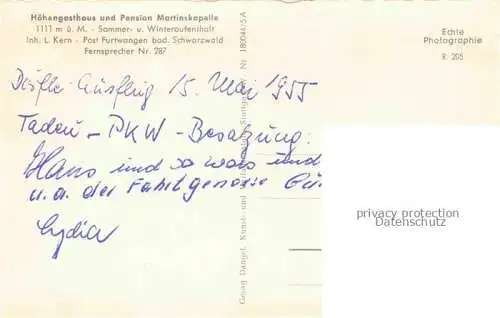 Höhengasthaus und Pension Martinskapelle
1111 m ü. M. - Sommer- u. Winteraufenthalt
Inh. L. Kern - Post Furtwangen bad. Schwarzwald
Fernsprecher Nr. 287
Echte
Photographie
R 205
Ausflug 15. Mai 1955
PKW - Besatzung:
Hans und so was und
u. a. der Fahrtgenosse
Lydia
Georg Dangel, Kunst- und Stuttgart Nr. 18004475A
privacy protection
Datenschutz